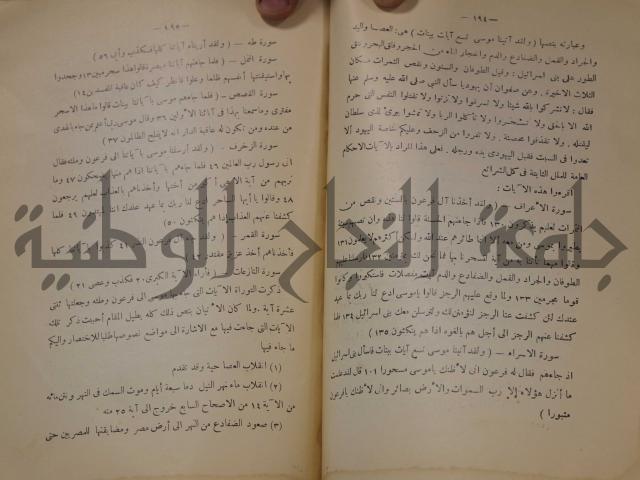 — ١٩٤ —
وعبارته بنصها (ولقد آتينا موسى تسع آيات بينات) هى: العصا واليد
والجراد والقمل والضفادع والدم وانفجار الماء من الحجر وفلق البحر ونتق
الطور على بنى اسرائيل: وقيل الطوفان والسنون ونقص الثمرات مكان
الثلاث الاخيرة. وعن صفوان أن يهوديا سأل النبي صلى الله عليه وسلم عنها
فقال: لا تشركوا بالله شيئا ولا تسرقوا ولا تزنوا ولا تقتلوا النفس التى حرم
الله الا بالحق ولا تسحروا ولا تأكلوا الربا ولا تمشوا ببرىء لذى سلطان
ليقتله. ولا تقذفوا محصنة. ولا تفروا من الزحف وعليكم خاصة اليهود ألا
تعدوا فى السبت فقبل اليهودى يده ورجله. فعلى هذا المراد بالآيات الاحكام
العامة للملل الثابتة فى كل الشرائع
اقرءوا هذه الآيات:
سورة الاعراف — (ولقد أخذنا آل فرعون بالسنين ونقص من
الثمرات لعلهم يذكرون ١٣٠ فاذا جاءتهم الحسنة قالوا لنا هذه وان تصبهم سيئة
يطيروا بموسى ومن معه ألا انما طائرهم عند الله ولكن أكثرهم لا يعلمون ١٣١
وقالوا مهما تأتنا به من آية لتسحرنا بها فما نحن لك بمؤمنين ١٣٢ فأرسلنا عليهم
الطوفان والجراد والقمل والضفادع والدم آيات مفصلات فاستكبروا وكانوا
قوما مجرمين ١٣٣ ولما وقع عليهم الرجز قالوا ياموسى ادع لنا ربك بما عهد
عندك لئن كشفت عنا الرجز لنؤمنن لك ولنرسلن معك بنى اسرائيل ١٣٤ فلما
كشفنا عنهم الرجز الى أجل هم بالغوه اذا هم ينكثون ١٣٥)
سورة الاسراء — (ولقد آتينا موسى تسع آيات بينات فاسأل بنى اسرائيل
اذ جاءهم فقال له فرعون انى لأظنك ياموسى مسحورا ١٠١ قال لقد علمت
ما أنزل هؤلاء إلا رب السموات والأرض بصائر وانى لأظنك يافرعون
مثبورا)
— ١٩٥ —
سورة طه — (ولقد أريناه آياتنا كلها فكذب وأبى ٥٦)
سورة النمل — (فلما جاءتهم آياتنا مبصرة قالوا هذا سحر مبين ١٣ وجحدوا
بها واستيقنتها أنفسهم ظلما وعلوا فانظر كيف كان عاقبة المفسدين ١٤)
سورة القصص — (فلما جاءهم موسى بآياتنا بينات قالوا ما هذا الا سحر
مفترى وما سمعنا بهذا فى آبائنا الأولين ٣٦ وقال موسى ربى أعلم بمن جاء بالهدى
من عنده ومن تكون له عاقبة الدار انه لا يفلح الظالمون ٣٧)
سورة الزخرف — (ولقد أرسلنا موسى بآياتنا الى فرعون وملئه فقال
انى رسول رب العالمين ٤٦ فلما جاءهم بآياتنا اذا هم منها يضحكون ٤٧ وما
نريهم من آية الا هى أكبر من أختها وأخذناهم بالعذاب لعلهم يرجعون
٤٨ وقالوا يا أيها الساحر ادع لنا ربك بما عهد عندك اننا لمهتدون ٤٩ فلما
كشفنا عنهم العذاب اذا هم ينكثون ٥٠)
سورة القمر — (ولقد جاء آل فرعون النذر ٤١ كذبوا بآياتنا كلها
فأخذناهم أخذ عزيز مقتدر ٤٢)
سورة النازعات — (فأراه الآية الكبرى ٢٠ فكذب وعصى ٢١)
ذكرت التوراة الآيات التى جاء بها موسى الى فرعون وملئه وجعلتها ثنتى
عشرة آية. ولما كان الاتيان بنص ذلك كله يطيل المقام أحببت ذكر تلك
الآيات التى جاءت فيها مع الاشارة الى مواضع نصوصها طلبا للاختصار واليكم
ما جاء فيها
(١) انقلاب العصا حية وقد تقدم
(٢) انقلاب ماء نهر النيل دما سبعة أيام وموت السمك فى النهر ونتن مائه
من الآية ١٤ من الاصحاح السابع خروج الى آية ٢٥ منه
(٣) صعود الضفادع من النهر الى أرض مصر ومضايقتها للمصريين حتى
جامعة النجاح الوطنية